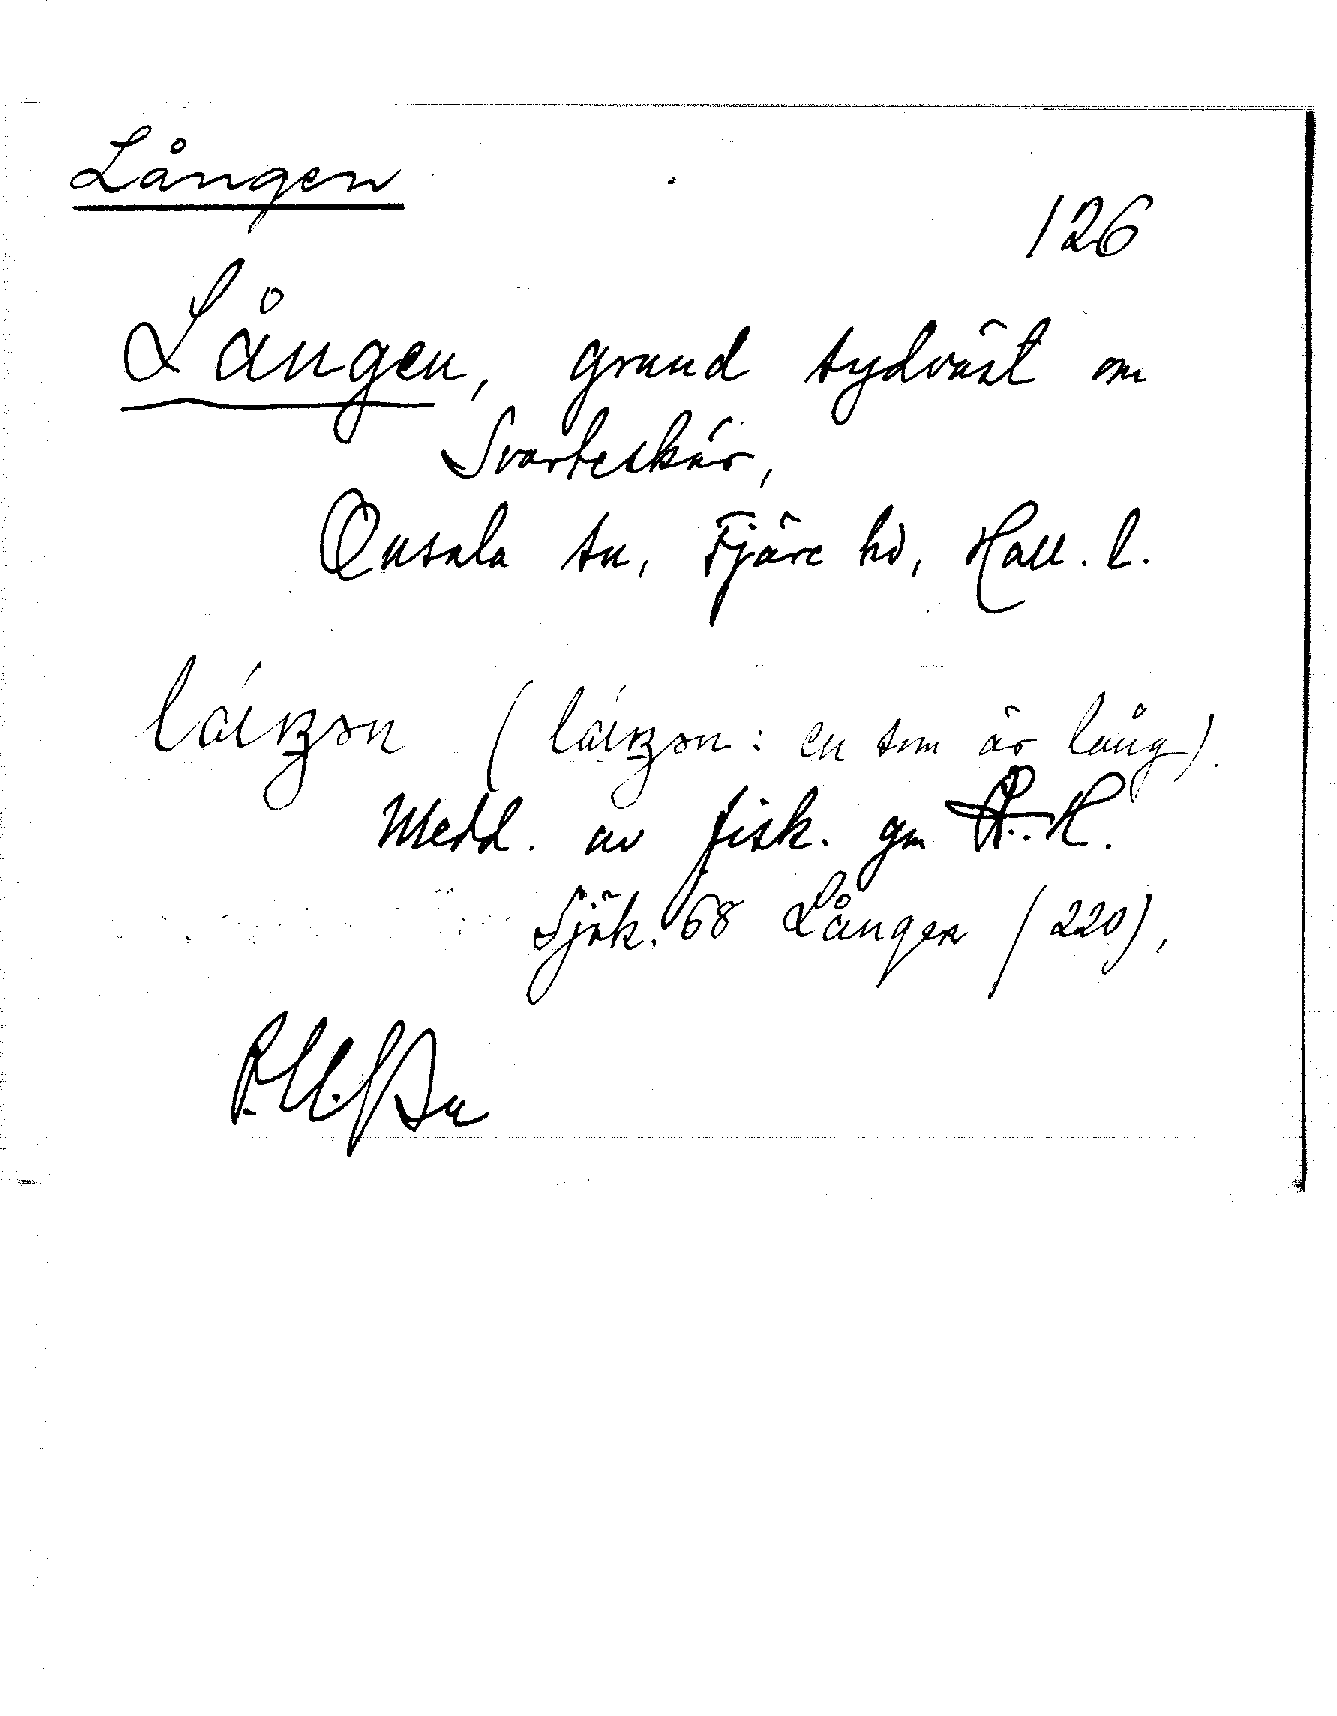 Lången
126
Lången, grund sydväst om
Svarteskär,
Onsala sn, Fjäre hd, Hall. l.
(             : en som är lång).
Medd. av fisk. gm H.
Sjök. 68 Lången (220),